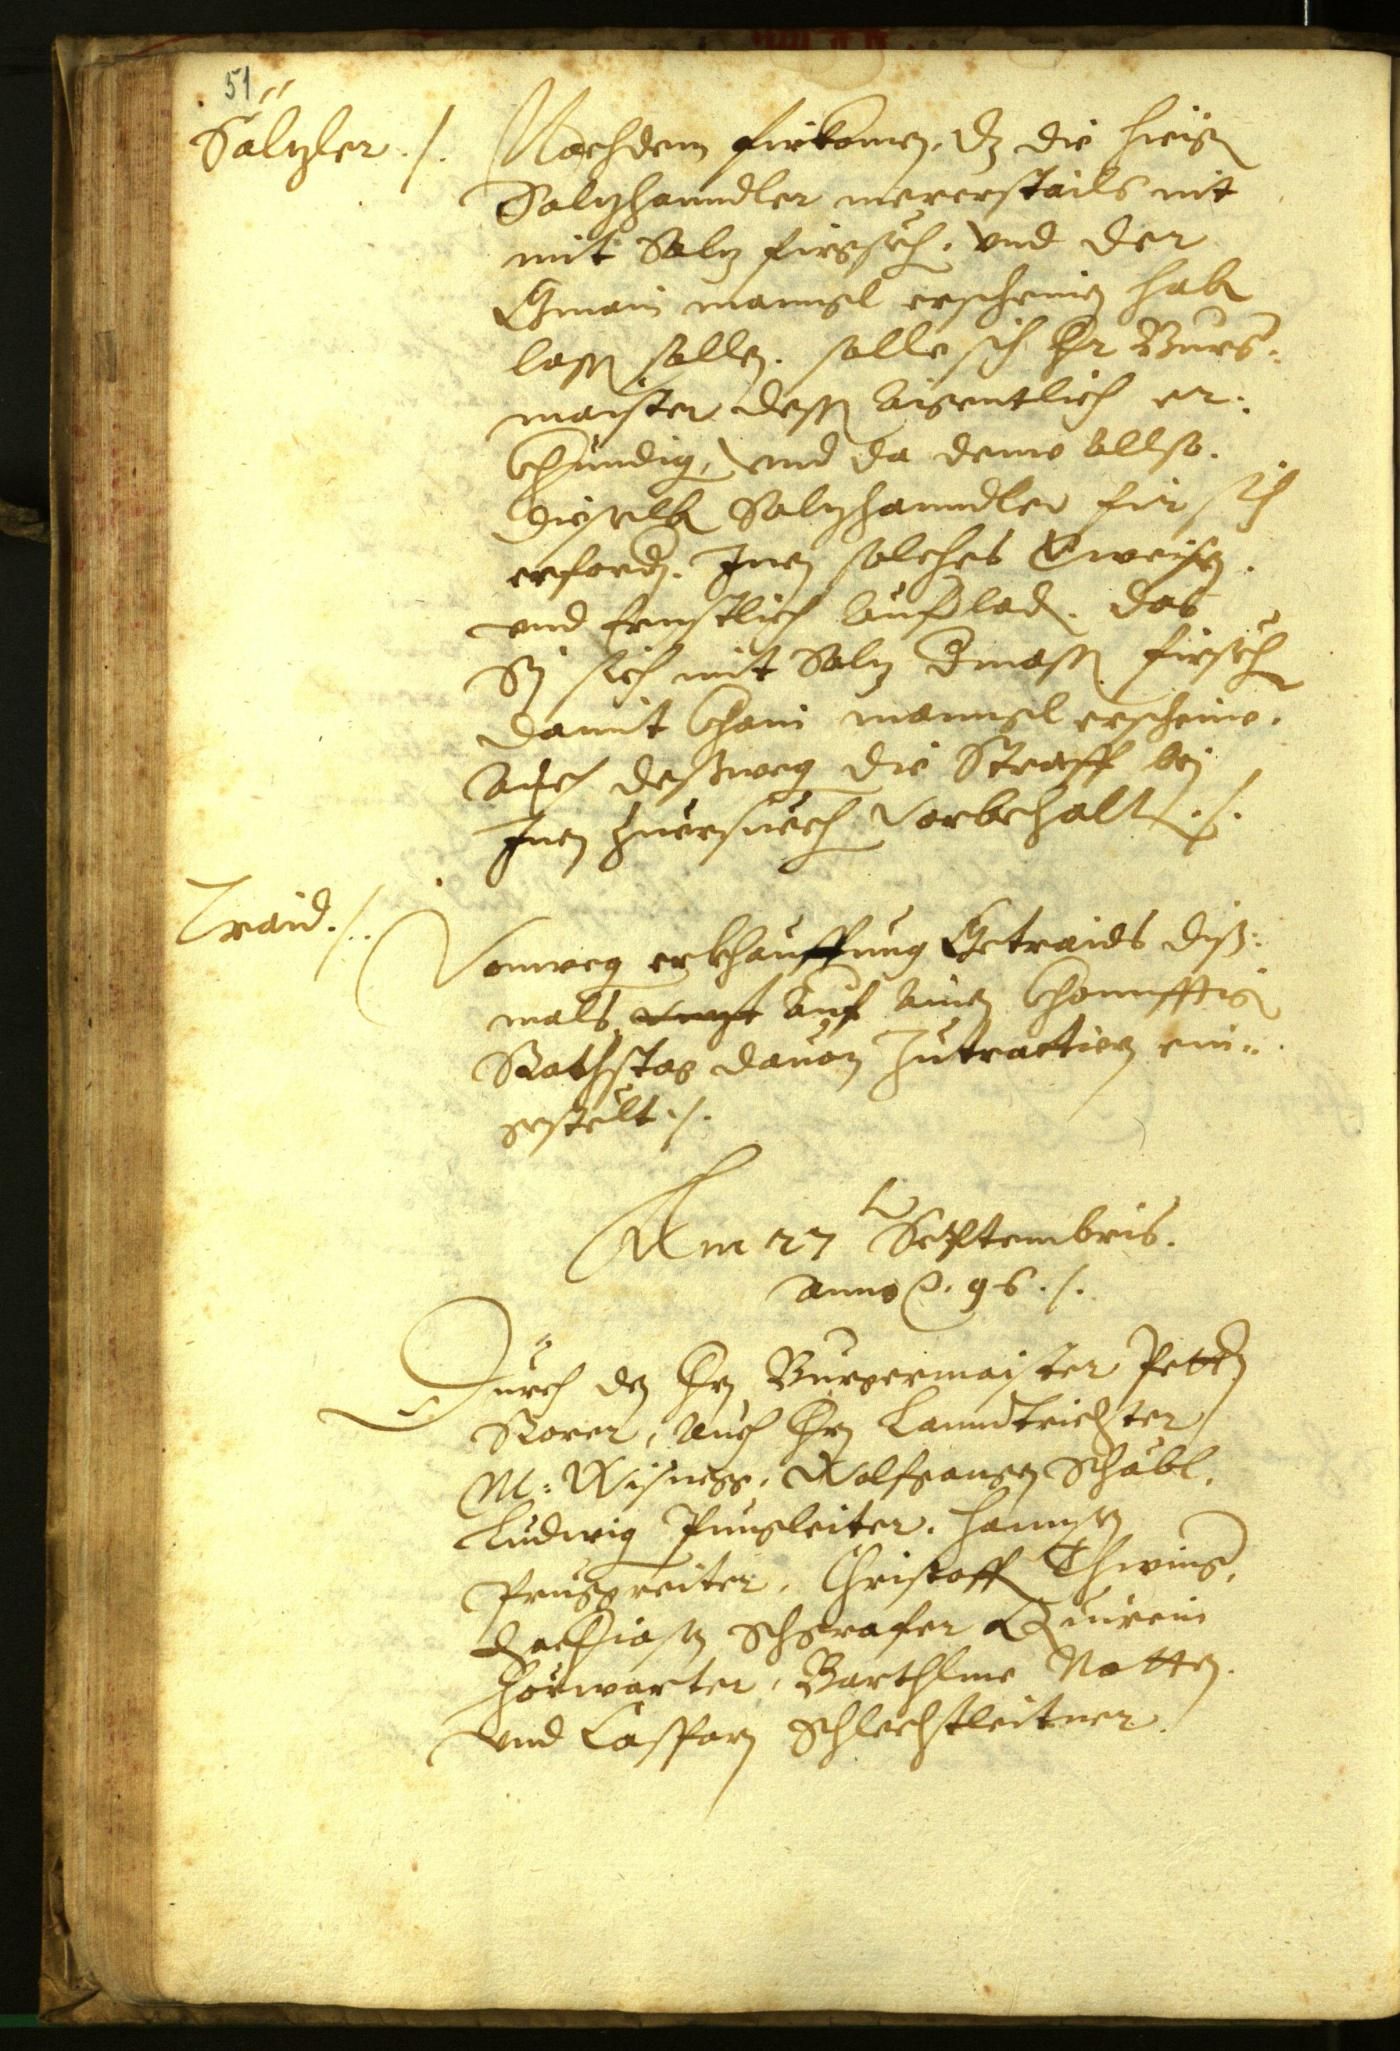 51
Sälzler ./.
Nachdem firkomen, dz die hieigen
Salzhanndler mererstails nit
mit Salz firgsech. vnd der
Gmain manngl erscheinen haben
lassen sollen. solle sich Hr Burg:
maister dessen aigentlich er:
khundigen, vnd da deme allso.
dieselben Salzhanndler fir sich
erfordern. Inen solches verweisen.
vnd ernstlich aufladen. das
Sy sich mit Salz dermassen firsechen
damit khain manngl erscheine.
auch desswegen die Straff bej
Inen zuersuechen vorbehalten ./.
Traid ./.
Vonwegen erkhauffung Getraids diß:
mals auf ainen khonfftigen
Rathstag dauon zutractiern ein:
gestelt ./.
Am 27 Septembris.
anno 96 ./.
Durch den Hrn Burgermaister Petern
Rorer, auch Hrn Lanndtrichter
M: Wisinger, Wolfgangen Schäbl,
Ludwig Pungleiter, Hannsen
Prugreiter, Christoff Thwing,
Zachiasen Schgrafer Quirein
Hörwarter, Barthlme Notten.
vnd Casparn Schlechtleitner.